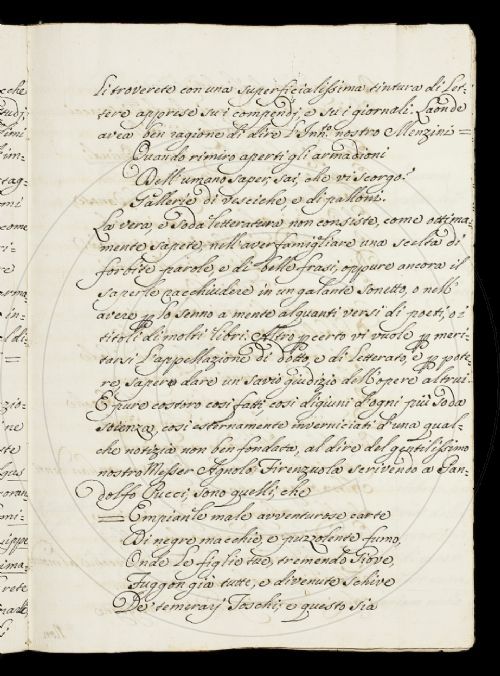 li troverete con una superficialissima tintura di Let-
tere apprese su i compendj, e su i giornali. Laonde
avea ben ragione di dire l'Inn.º nostro Menzini =
Quando rimiro aperti gli armadioni
Dell'umano saper, sai, che vi scorgo?
Gallerie di vesciche, e di palloni.
La vera, e soda letteratura non consiste, come ottima-
mente sapete, nell'aver famigliare una scelta di
forbite parole, e di belle frasi, oppure ancora il
saperle racchiudere in un galante sonetto, o nell'
avere p lo senno a mente alquanti versi di poeti, o i
titoli di molti libri. Altro p certo vi vuole p meri-
tarsi l'appellazione di dotto, e di letterato, e p pote-
re, sapere dare un savio giudizio dell'opere altrui.
E pure costoro così fatti, così digiuni d'ogni più soda
scienza, così esternamente inverniciati d'una qual-
che notizia non ben fondata, al dire del gentilissimo
nostro Messer Agnolo Firenzuola scrivendo a Pan-
dolfo Pucci, sono quelli, che
= Empian le male avventurose carte
Di negre macchie, e puzzolente fumo,
Onde le figlie tue, tremendo Giove,
Fuggon già tutte, e divenute schive
De' temerarj Toschi; e questo sia